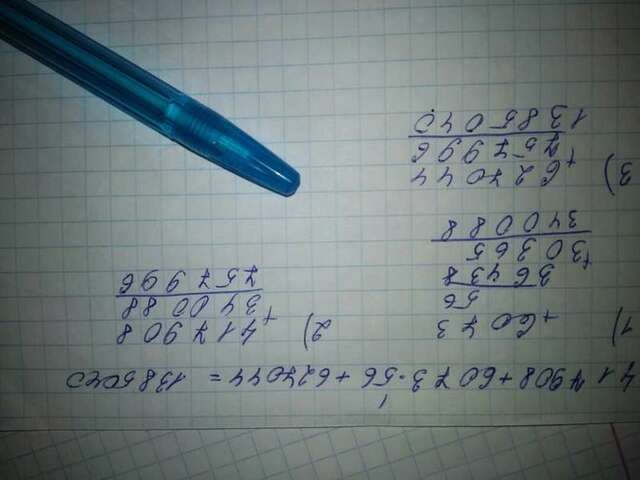 417908+6073·56+627044=1385040
1)
+6073
56
36438
+30365
340088
2)
417908
+340088
757996
3)
627044
+757996
1385040